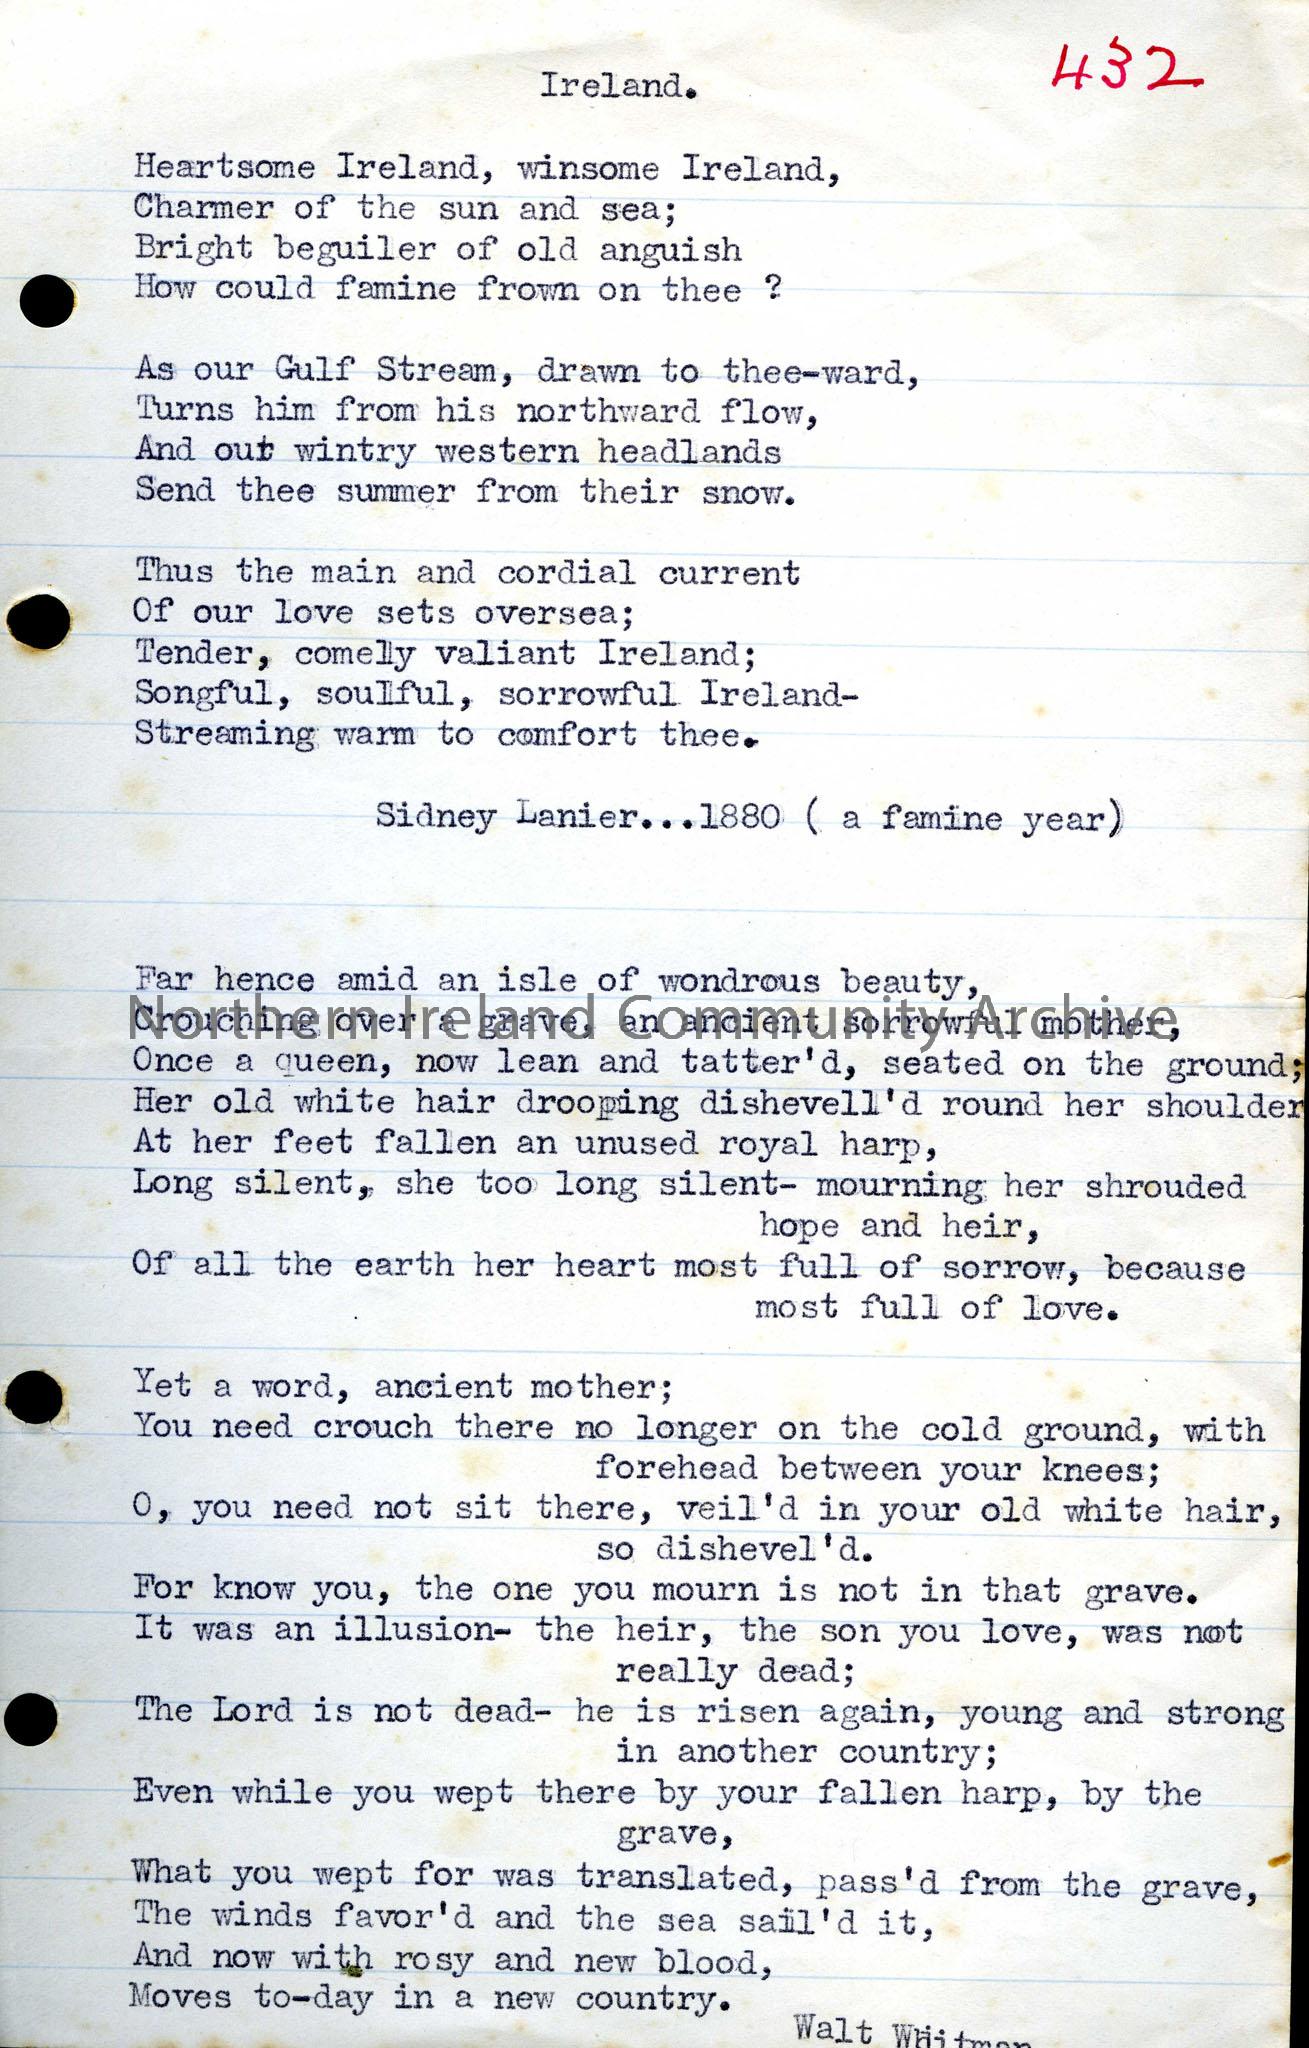 432
Ireland.
Heartsome Ireland, winsome Ireland,
Charmer of the sun and sea;
Bright beguiler of old anguish
How could famine frown on thee ?
As our Gulf Stream, drawn to thee-ward,
Turns him from his northward flow,
And our wintry western headlands
Send thee summer from their snow.
Thus the main and cordial current
Of our love sets oversea;
Tender, comely valiant Ireland;
Songful, soulful, sorrowful Ireland-
Streaming warm to comfort thee.
Sidney Lanier...1880 ( a famine year)
Far hence amid an isle of wondrous beauty,
Crouching over a grave, an ancient sorrowful mother,
Northern Ireland Community Archive
Once a queen, now lean and tatter'd, seated on the ground;
Her old white hair drooping dishevell'd round her shoulder
At her feet fallen an unused royal harp,
Long silent, she too long silent- mourning her shrouded
hope and heir,
Of all the earth her heart most full of sorrow, because
most full of love.
Yet a word, ancient mother;
You need crouch there no longer on the cold ground, with
forehead between your knees;
O, you need not sit there, veil'd in your old white hair,
so dishevel'd.
For know you, the one you mourn is not in that grave.
It was an illusion- the heir, the son you love, was not
really dead;
The Lord is not dead- he is risen again, young and strong
in another country;
Even while you wept there by your fallen harp, by the
grave,
What you wept for was translated, pass'd from the grave,
The winds favor'd and the sea sail'd it,
And now with rosy and new blood,
Moves to-day in a new country.
Walt Whitman